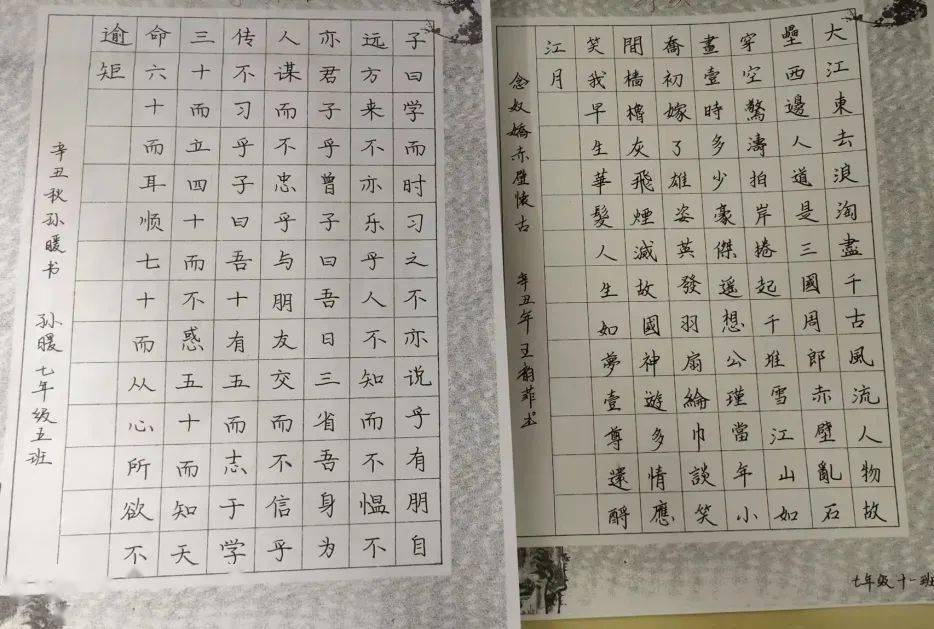 子曰学而时习之不亦说乎有朋自
远方来不亦乐乎人不知而不愠不
亦君子乎曾子曰吾日三省吾身为
人谋而不忠乎与朋友交而不信乎
传不习乎子曰吾十有五而志于学
三十而立四十而不惑五十而知天
命六十而耳顺七十而从心所欲不
逾矩
辛丑秋孙暖书 孙暖七年级五班
大江東去浪淘盡千古風流人物故
壘西邊人道是三國周郎赤壁亂石
穿空驚濤拍岸捲起千堆雪江山如
畫壹時多少豪傑遥想公瑾當年小
喬初嫁了雄姿英發羽扇綸巾談笑
間檣櫓灰飛煙滅故國神遊多情應
笑我早生華髮人生如夢壹尊還酹
江月
念奴嬌赤壁懷古 辛丑年王韵菲书
七年级十一班